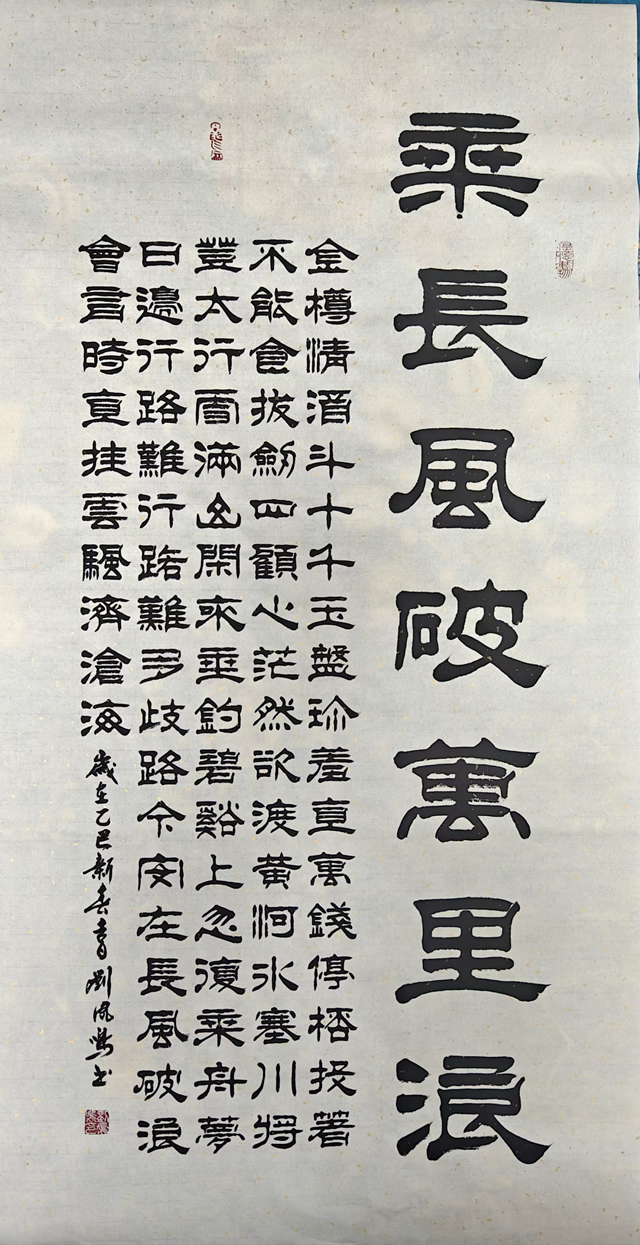 乘長風破萬里浪
金樽清酒斗十千玉盤珍羞直萬錢停桮投著
不能食拔劍四顧心茫然欲渡黃河冰塞川將
登太行雪滿山閑來垂釣碧谿上忽復乘舟夢
日邊行路難行路難多歧路今安在長風破浪
會有時直挂雲颿濟滄海
歲在乙巳新春 劉鳳 书